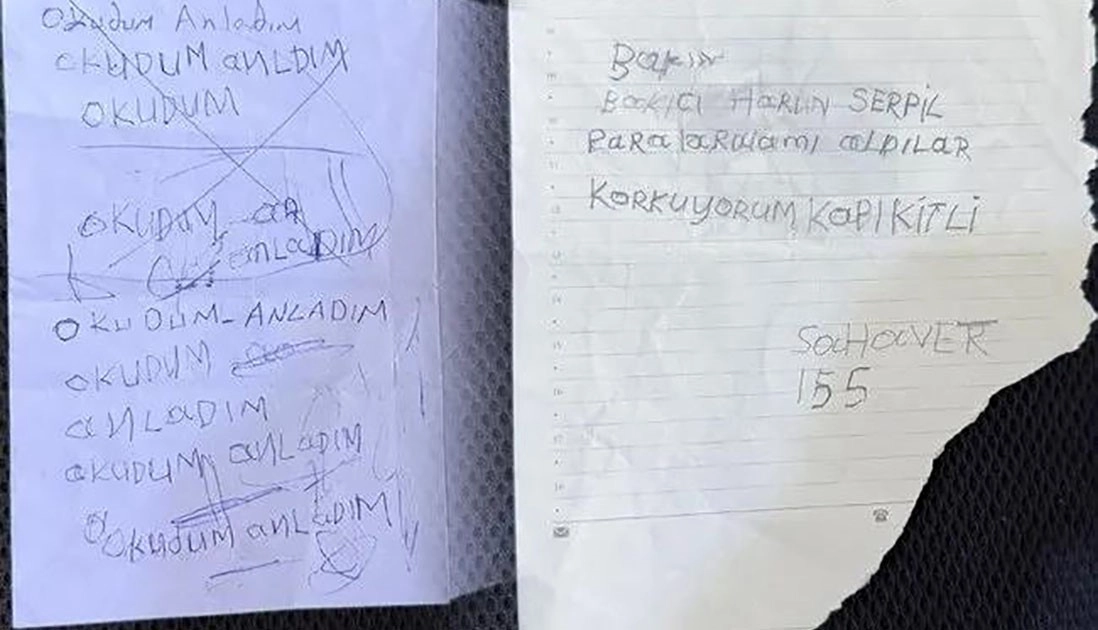 Okudum Anladım
OKUDUM anLDIM
OKUDUM
OKUDUM
anLaDIM
OKUDUM-ANLADIM
OKUDUM
anLADIM
OKUDUM anLaDIM
Okudum anLaDIM
Bakın
BakıCI HARUN SERPİL
PaRalaRılamı alDILAR
KORKUYORUM KAPI KİTLİ
155